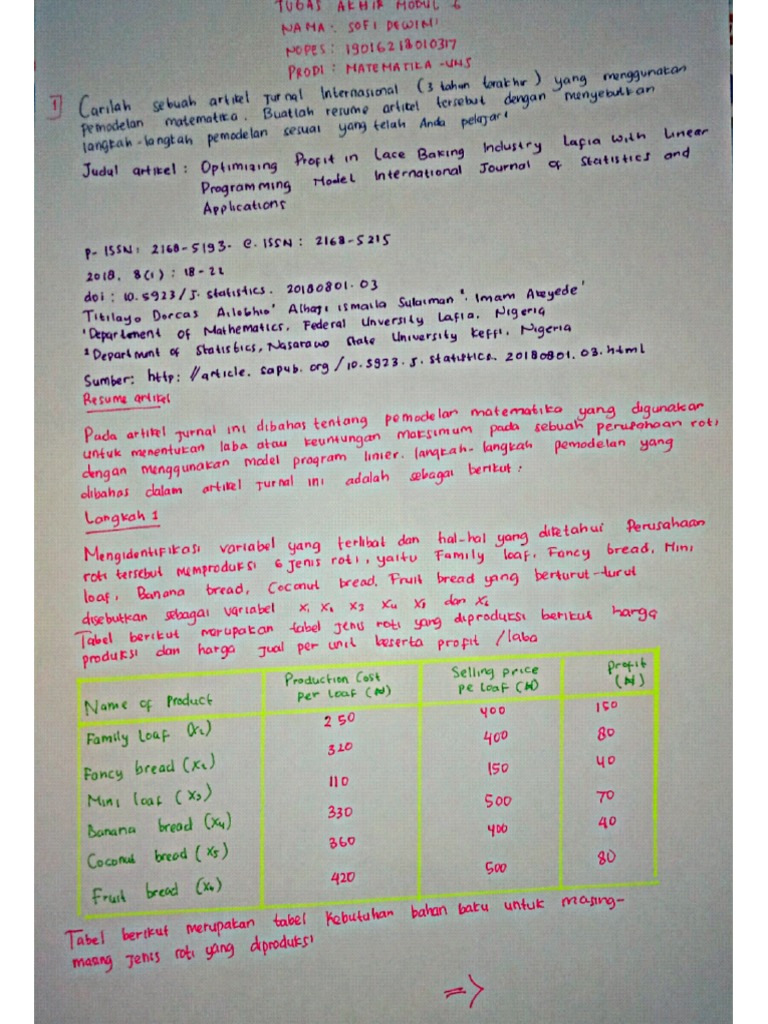 TUGAS AKHIR MODUL 6
NAMA : SOFI DEWINI
NOPES : 19016218010317
PRODI : MATEMATIKA - UNS
1] Carilah sebuah artikel Jurnal Internasional (3 tahun terakhir) yang menggunakan
pemodelan matematika. Buatlah resume artikel tersebut dengan menyebutkan
langkah-langkah pemodelan sesuai yang telah Anda pelajari
Judul artikel : Optimizing Profit in Lace Baking Industry Lafia with Linear
Programming Model International Journal of Statistics and
Applications
P- ISSN: 2168-5193. e. ISSN : 2168-5215
2018. 8(1) : 18-22
doi : 10.5923/J. statistics. 20180801. 03
Titilayo Dorcas Ailobhio¹ Alhaji Ismaila Sulaiman². Imam Akeyede¹
¹Department of Mathematics, Federal Unversity Lafia, Nigeria
²Department of Statistics, Nasarawo State University Keffi, Nigeria
Sumber: http: //article. sapub. org /10.5923. s. statistics. 20180801. 03. html
Resume artikel
Pada artikel Jurnal ini dibahas tentang pemodelan matematika yang digunakan
untuk menentukan laba atau keuntungan maksimum pada sebuah perusahaan roti
dengan menggunakan model program linier. langkah-langkah pemodelan yang
dibahas dalam artikel jurnal ini adalah sebagai berikut :
Langkah 1
Mengidentifikasi variabel yang terlibat dan hal-hal yang diketahui Perusahaan
roti tersebut memproduksi 6 jenis roti, yaitu Family loaf. Fancy bread, Mini
loaf, Banana bread, Coconut bread, Fruit bread yang berturut-turut
disebutkan sebagai variabel x₁ x₂ x₃ x₄ x₅ dan x₆
Tabel berikut merupakan tabel jenis roti yang diproduksi berikut harga
produksi dan harga jual per unit beserta profit / laba
Name of Product Production Cost per Loaf (₦) Selling price pe Loaf (₦) Profit (₦)
Family Loaf (x₁) 250 400 150
Fancy bread (x₂) 320 400 80
Mini loaf (x₃) 110 150 40
Banana bread (x₄) 330 500 70
Coconut bread (x₅) 360 400 40
Fruit bread (x₆) 420 500 80
Tabel berikut merupakan tabel kebutuhan bahan baku untuk masing-
masing jenis roti yang diproduksi
=>